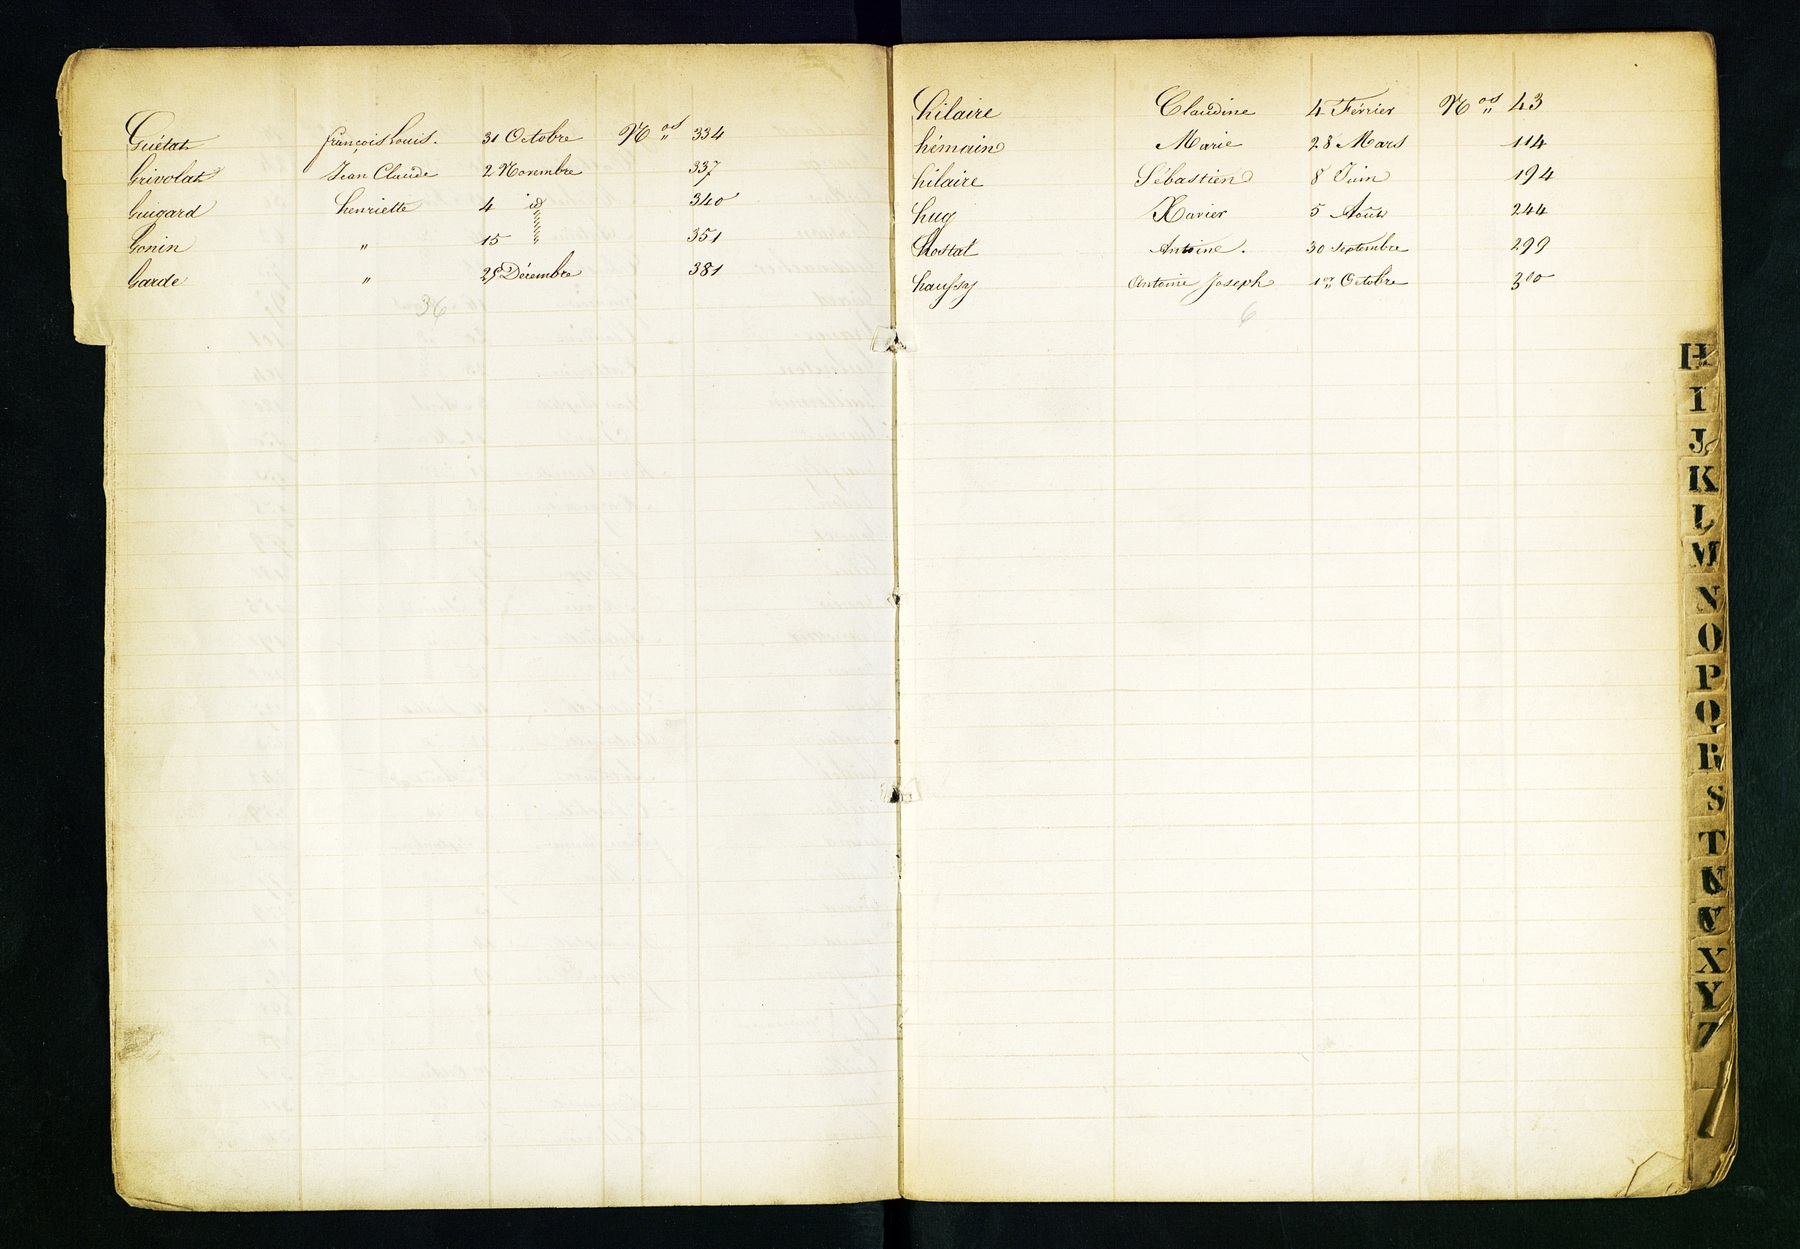 Guétat François Louis. 31 Octobre Nos " 334
Grivolat Jean Claude 2 Novembre 337
Guigard henriette 4 id 340
Gonin " 15 " 351
Garde " 29 Décembre 381
36
hilaire Claudine 4 Février Nos " 43
hémain Marie 28 Mars 114
hilaire Sébastien 8 Juin 194
hug Xavier 5 Août 244
Hostal Antoine. 30 Septembre 299
haussy Antoine Joseph 1er Octobre 300
6
H
I
J
K
L
M
N
O
P
Q
R
S
T
U
V
X
Y
Z